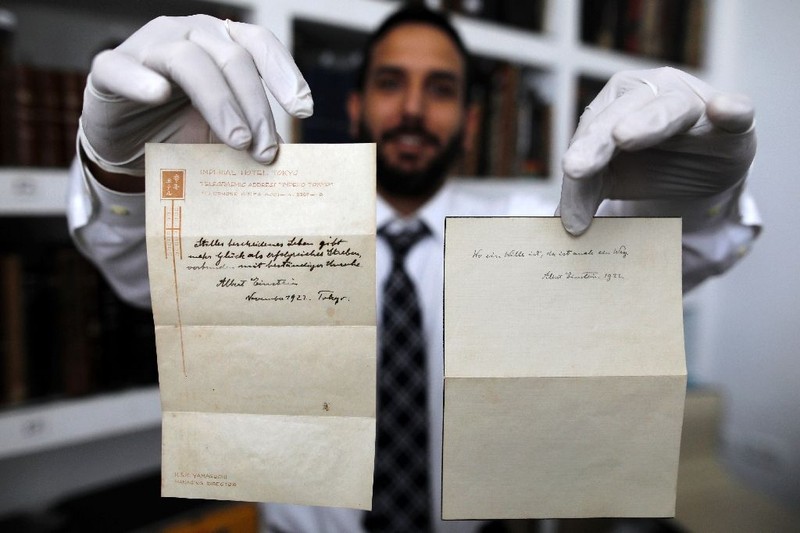 IMPERIAL HOTEL, TOKYO
TELEGRAPHIC ADDRESS "IMPEHO TOKYO"
Stilles bescheidenes Leben gibt
mehr Glück als erfolgreiches Streben,
verbunden mit beständiger Unruhe.
Albert Einstein
November 1922. Tokyo.
YAMAGUCHI
MANAGING DIRECTOR
Wo ein Wille ist, da ist auch ein Weg.
Albert Einstein. 1922.